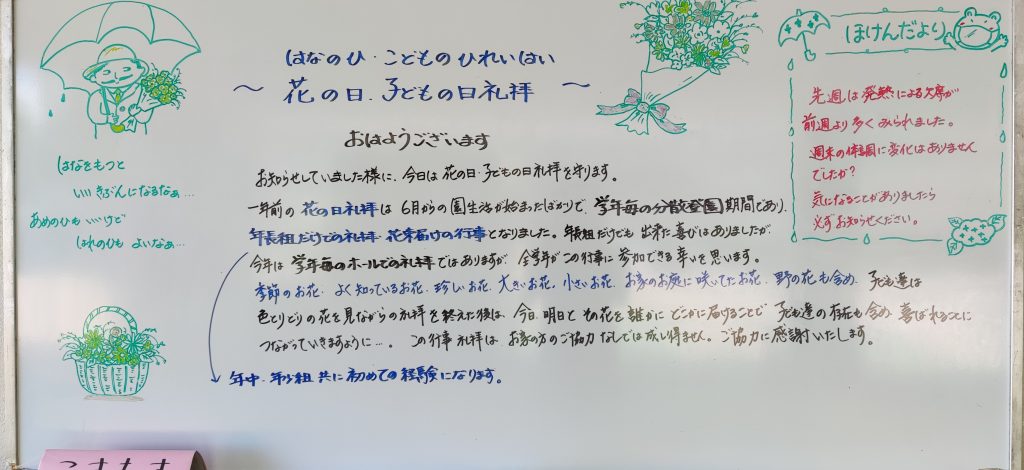 はなのひ・こどものひれいはい
〜 花の日・子どもの日礼拝 〜
おはようございます
お知らせしていました様に、今日は花の日・子どもの日礼拝を守ります。
一年前の花の日礼拝は6月からの園生活が始まったばかりで、学年毎の分散登園期間であり、
年長組だけでの礼拝・花束届けの行事となりました。年長組だけでも出来た喜びはありましたが
今年は学年毎のホールでの礼拝ではありますが、全学年がこの行事に参加できる幸いを思います。
季節のお花、よく知っているお花、珍しいお花、大きいお花、小さいお花、お家のお庭に咲いてたお花、野の花も含め、子ども達は
色とりどりの花を見ながらの礼拝を終えた後は、今日、明日とその花を誰かに どこかに届けることで 子ども達の存在も含め 喜ばれることに
つながっていきますように…。この行事 礼拝は お家の方のご協力なしでは成し得ません。ご協力に感謝いたします。
年中・年少組 共に初めての経験になります。
はなをもつと
いいきぶんになるなぁ…
あめのひも いいけど
はれのひも よいなぁ…
ほけんだより
先週は発熱による欠席が
前週より多くみられました。
週末の体調に変化はありません
でしたか？
気になることがありましたら
必ずお知らせください。